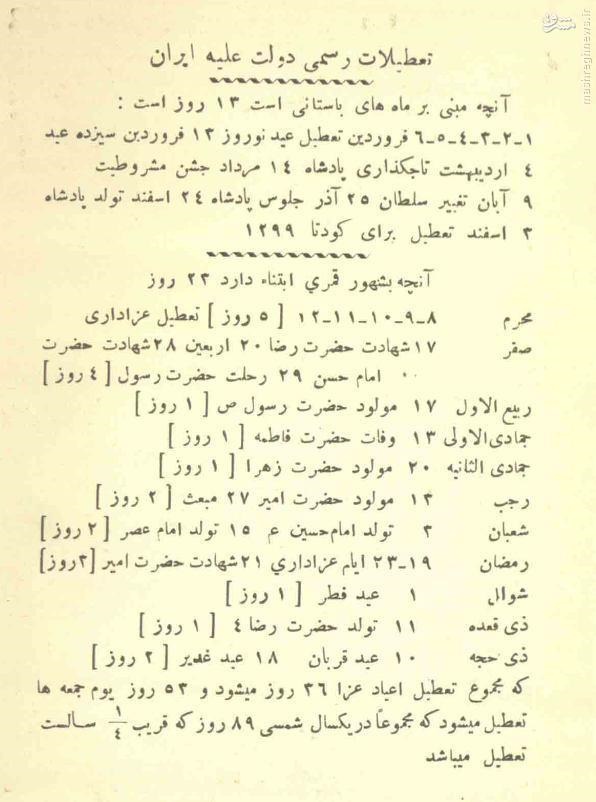 تعطیلات رسمی دولت علیه ایران
آنچه مبنی بر ماه های باستانی است ۱۳ روز است :
۱ـ۲ـ۳ـ۴ـ۵ـ۶ فروردین تعطیل عید نوروز ۱۳ فروردین سیزده عید
٤ اردیبهشت تاجگذاری پادشاه ۱٤ مرداد جشن مشروطیت
۹ آبان تغییر سلطان ۲۵ آذر جلوس پادشاه ۲٤ اسفند تولد پادشاه
۳ اسفند تعطیل برای کودتا ۱۲۹۹
آنچه بشهور قمری ابتناء دارد ۲۳ روز
محرم ۸ـ۹ـ۱۰ـ۱۱ـ۱۲ [ ۵ روز ] تعطیل عزاداری
صفر ۱۷ شهادت حضرت رضا ۲۰ اربعین ۲۸ شهادت حضرت
امام حسن ۲۹ رحلت حضرت رسول [ ٤ روز ]
ربیع الاول ۱۷ مولود حضرت رسول ص [ ۱ روز ]
جمادی‌الاولی ۱۳ وفات حضرت فاطمه [ ۱ روز ]
جمادی الثانیه ۲۰ مولود حضرت زهرا [ ۱ روز ]
رجب ۱۳ مولود حضرت امیر ۲۷ مبعث [ ۲ روز ]
شعبان ۳ تولد امام حسین ع ۱۵ تولد امام عصر [ ۲ روز ]
رمضان ۱۹ـ۲۳ ایام عزاداری ۲۱ شهادت حضرت امیر [ ۳ روز ]
شوال ۱ عید فطر [ ۱ روز ]
ذی قعده ۱۱ تولد حضرت رضا ٤ [ ۱ روز ]
ذی حجه ۱۰ عید قربان ۱۸ عید غدیر [ ۲ روز ]
که مجموع تعطیل اعیاد عزا ۳٦ روز میشود و ۵۳ روز یوم جمعه ها
تعطیل میشود که مجموعاً در یکسال شمسی ۸۹ روز که قریب ۱/٤ سالست
تعطیل میباشد
مشرق
mashreghnews.ir